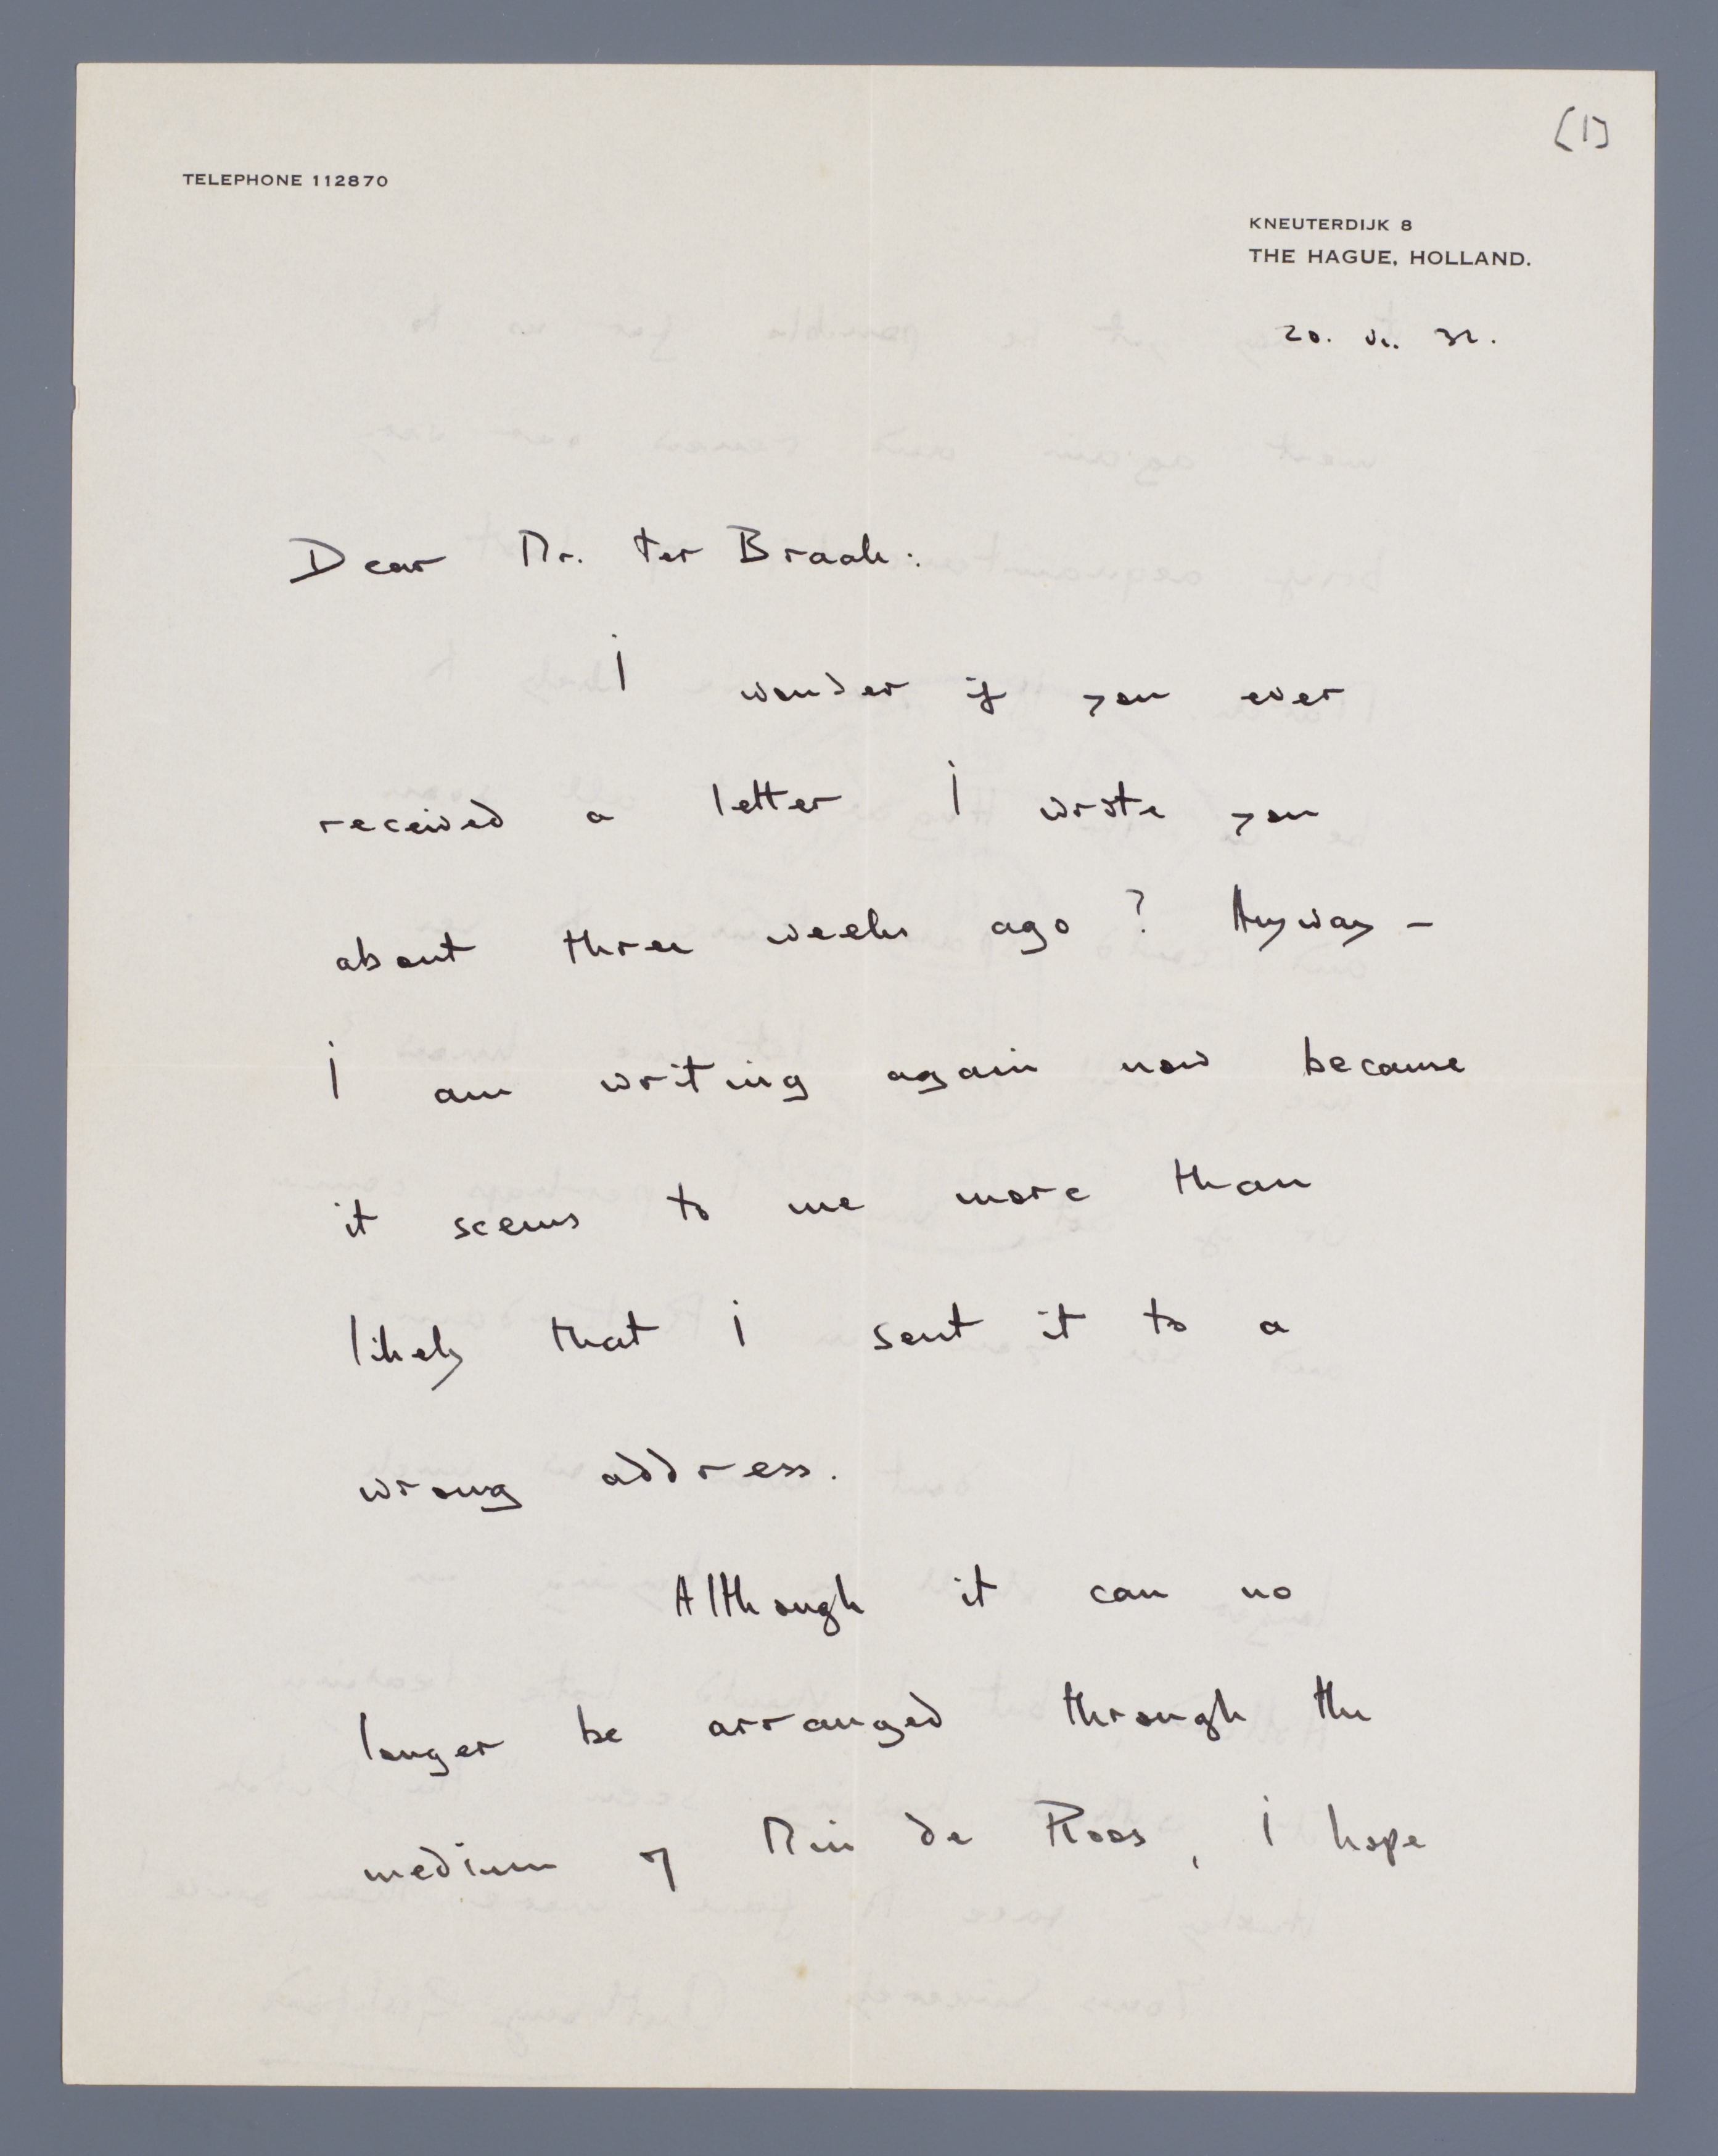 [1]
TELEPHONE 112870
KNEUTERDIJK 8
THE HAGUE, HOLLAND.
20. VI. 32.
Dear Mr. ter Braak:
I wonder if you ever
received a letter I wrote you
about three weeks ago? Anyway –
I am writing again now because
it seems to me more than
likely that I sent it to a
wrong address.
Although it can no
longer be arranged through the
medium of Min de Roos, I hope